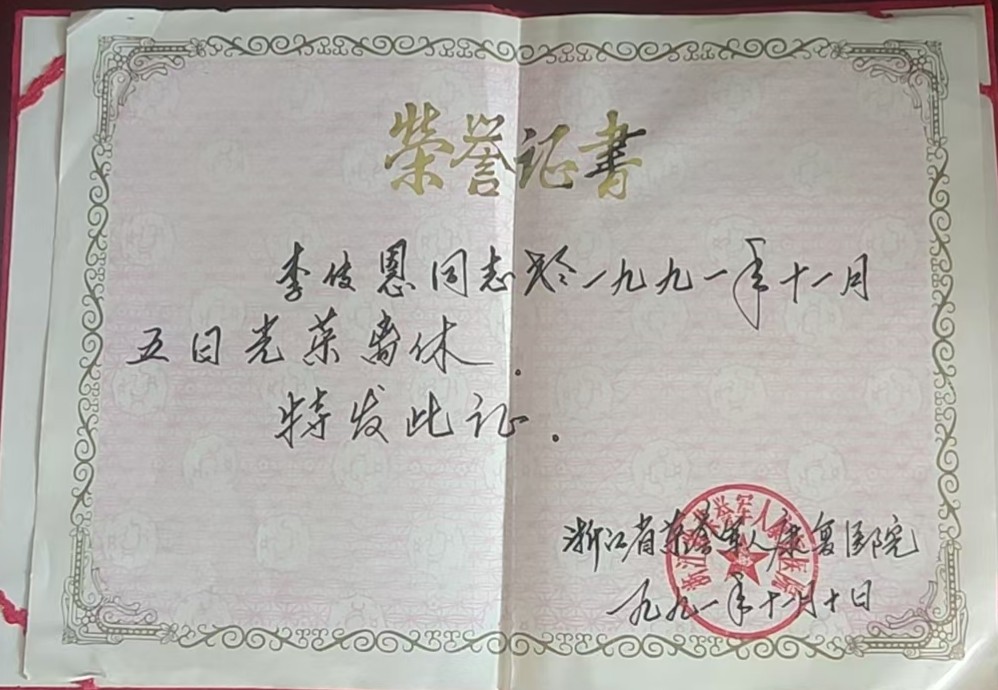 荣誉证书
李俊恩同志于一九九一年十一月
五日光荣离休.
特发此证.
浙江省荣誉军人康复医院
一九九一年十一月十日